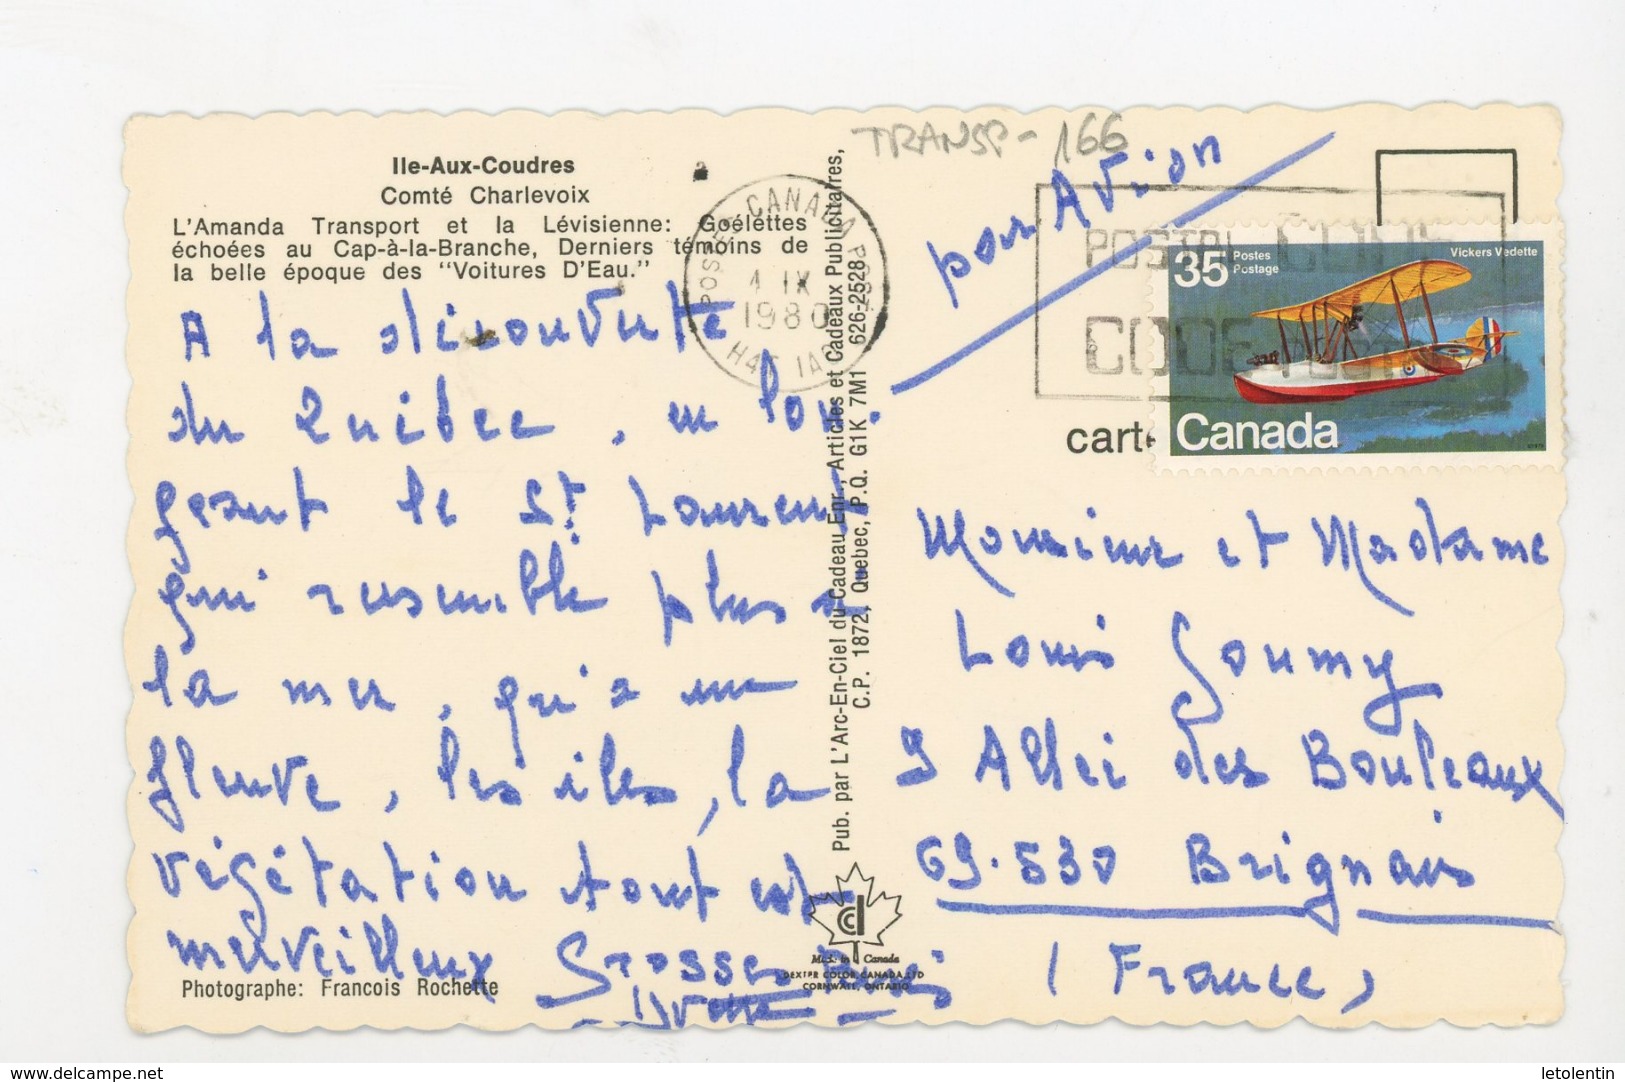 TRANSP-166
Ile-Aux-Coudres
Comté Charlevoix
L'Amanda Transport et la Lévisienne: Goélettes
échoées au Cap-à-la-Branche, Derniers témoins de
la belle époque des "Voitures D'Eau."
A la découverte
du Québec, en lon-
geant le St Laurent
qui ressemble plus à
la mer, qu'à un
fleuve, les îles, la
végétation tout est
merveilleux Grosses bises
Yvette
Photographe: Francois Rochette
Pub. par L'Arc-En-Ciel du Cadeau Enr., Articles et Cadeaux Publicitaires,
C.P. 1872, Quebec, P.Q. G1K 7M1 626-2528
Made in Canada
DEXTER COLOR CANADA LTD
CORNWALL, ONTARIO
CANADA
4 IX
1980
par Avion
POSTAL CODE
CODE POSTAL
35 Postes
Postage
Vickers Vedette
Canada
carte
Monsieur et Madame
Louis Goumy
9 Allée des Bouleaux
69.530 Brignais
(France)
delcampe.net
letolentin